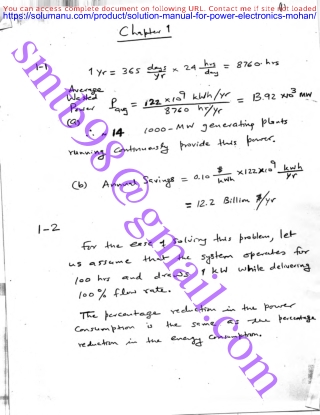 You can access complete document on following URL. Contact me if site not loaded
https://solumanu.com/product/solution-manual-for-power-electronics-mohan/
Chapter 1
1-1 1 yr = 365 days/yr × 24 hrs/day = 8760 hrs
Average
Wasted
Power P avg = 122 × 10⁹ kWh/yr / 8760 hr/yr = 13.92 × 10³ MW
(a)
∴ ≈ 14 1000-MW generating plants
running continuously provide this power.
(b) Annual Savings = 0.10 $/kWh × 122 × 10⁹ kWh/yr
= 12.2 Billion $/yr
1-2
For the ease of solving this problem, let
us assume that the system operates for
100 hrs and draws 1 kW while delivering
100% flow rate.
The percentage reduction in the power
consumption is the same as the percentage
reduction in the energy consumption.
smtb98@gmail.com